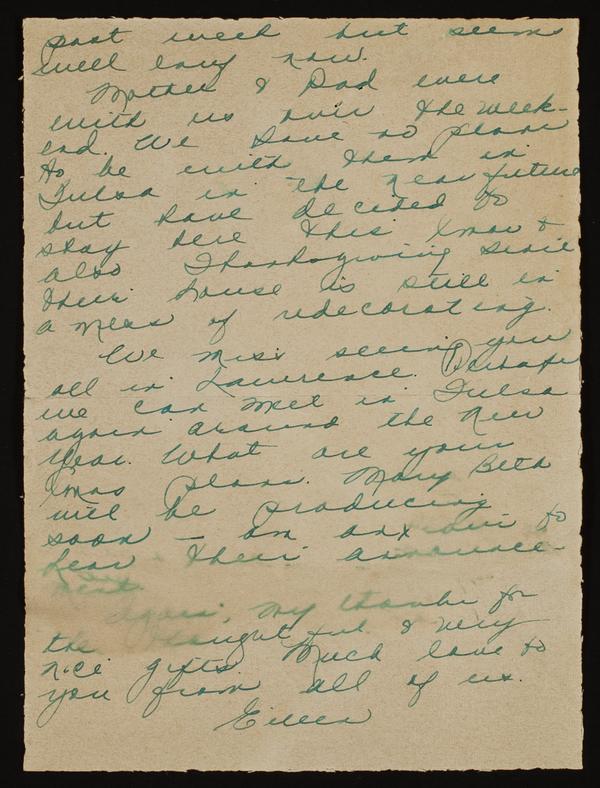 past week but seems
well long now.
Mother & Dad were
with us over the week-
end. We have no plans
to be with them in
Tulsa in the near future
but have decided to
stay here this Xmas &
also Thanksgiving since
their house is still in
a mess of redecorating.
We miss seeing you
all in Lawrence. Perhaps
we can meet in Tulsa
again around the New
Year. What are your
Xmas plans. Mary Beth
will be producing
soon - am anxious to
hear their announce-
ment.
Again, my thanks for
the thoughtful & very
nice gifts. Much love to
you from all of us.
Eileen